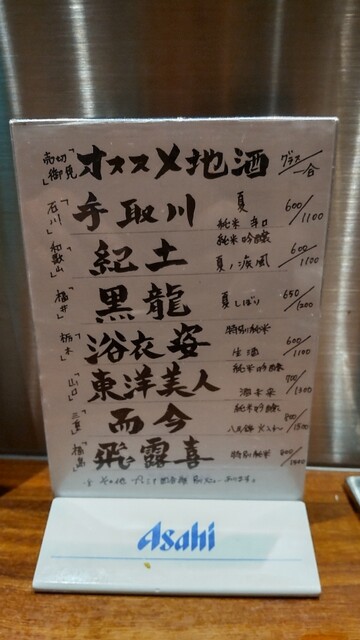 「売切御免」 オススメ地酒 グラス/一合
「石川」 手取川 夏 純米 辛口 600/1100
「和歌山」 紀土 純米吟醸 夏ノ疾風 600/1100
「福井」 黒龍 夏しぼり 650/1200
「栃木」 浴衣姿 特別純米 生酒 600/1100
「山口」 東洋美人 純米吟醸 700/1300
「三重」 而今 純米吟醸 八反錦 火入れ 800/1500
「福島」 飛露喜 特別純米 800/1500
その他 プレミア
Asahi